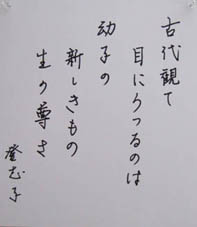 古代観て
目にうつるのは
幼子の
新しきもの
生の尊さ
登志子